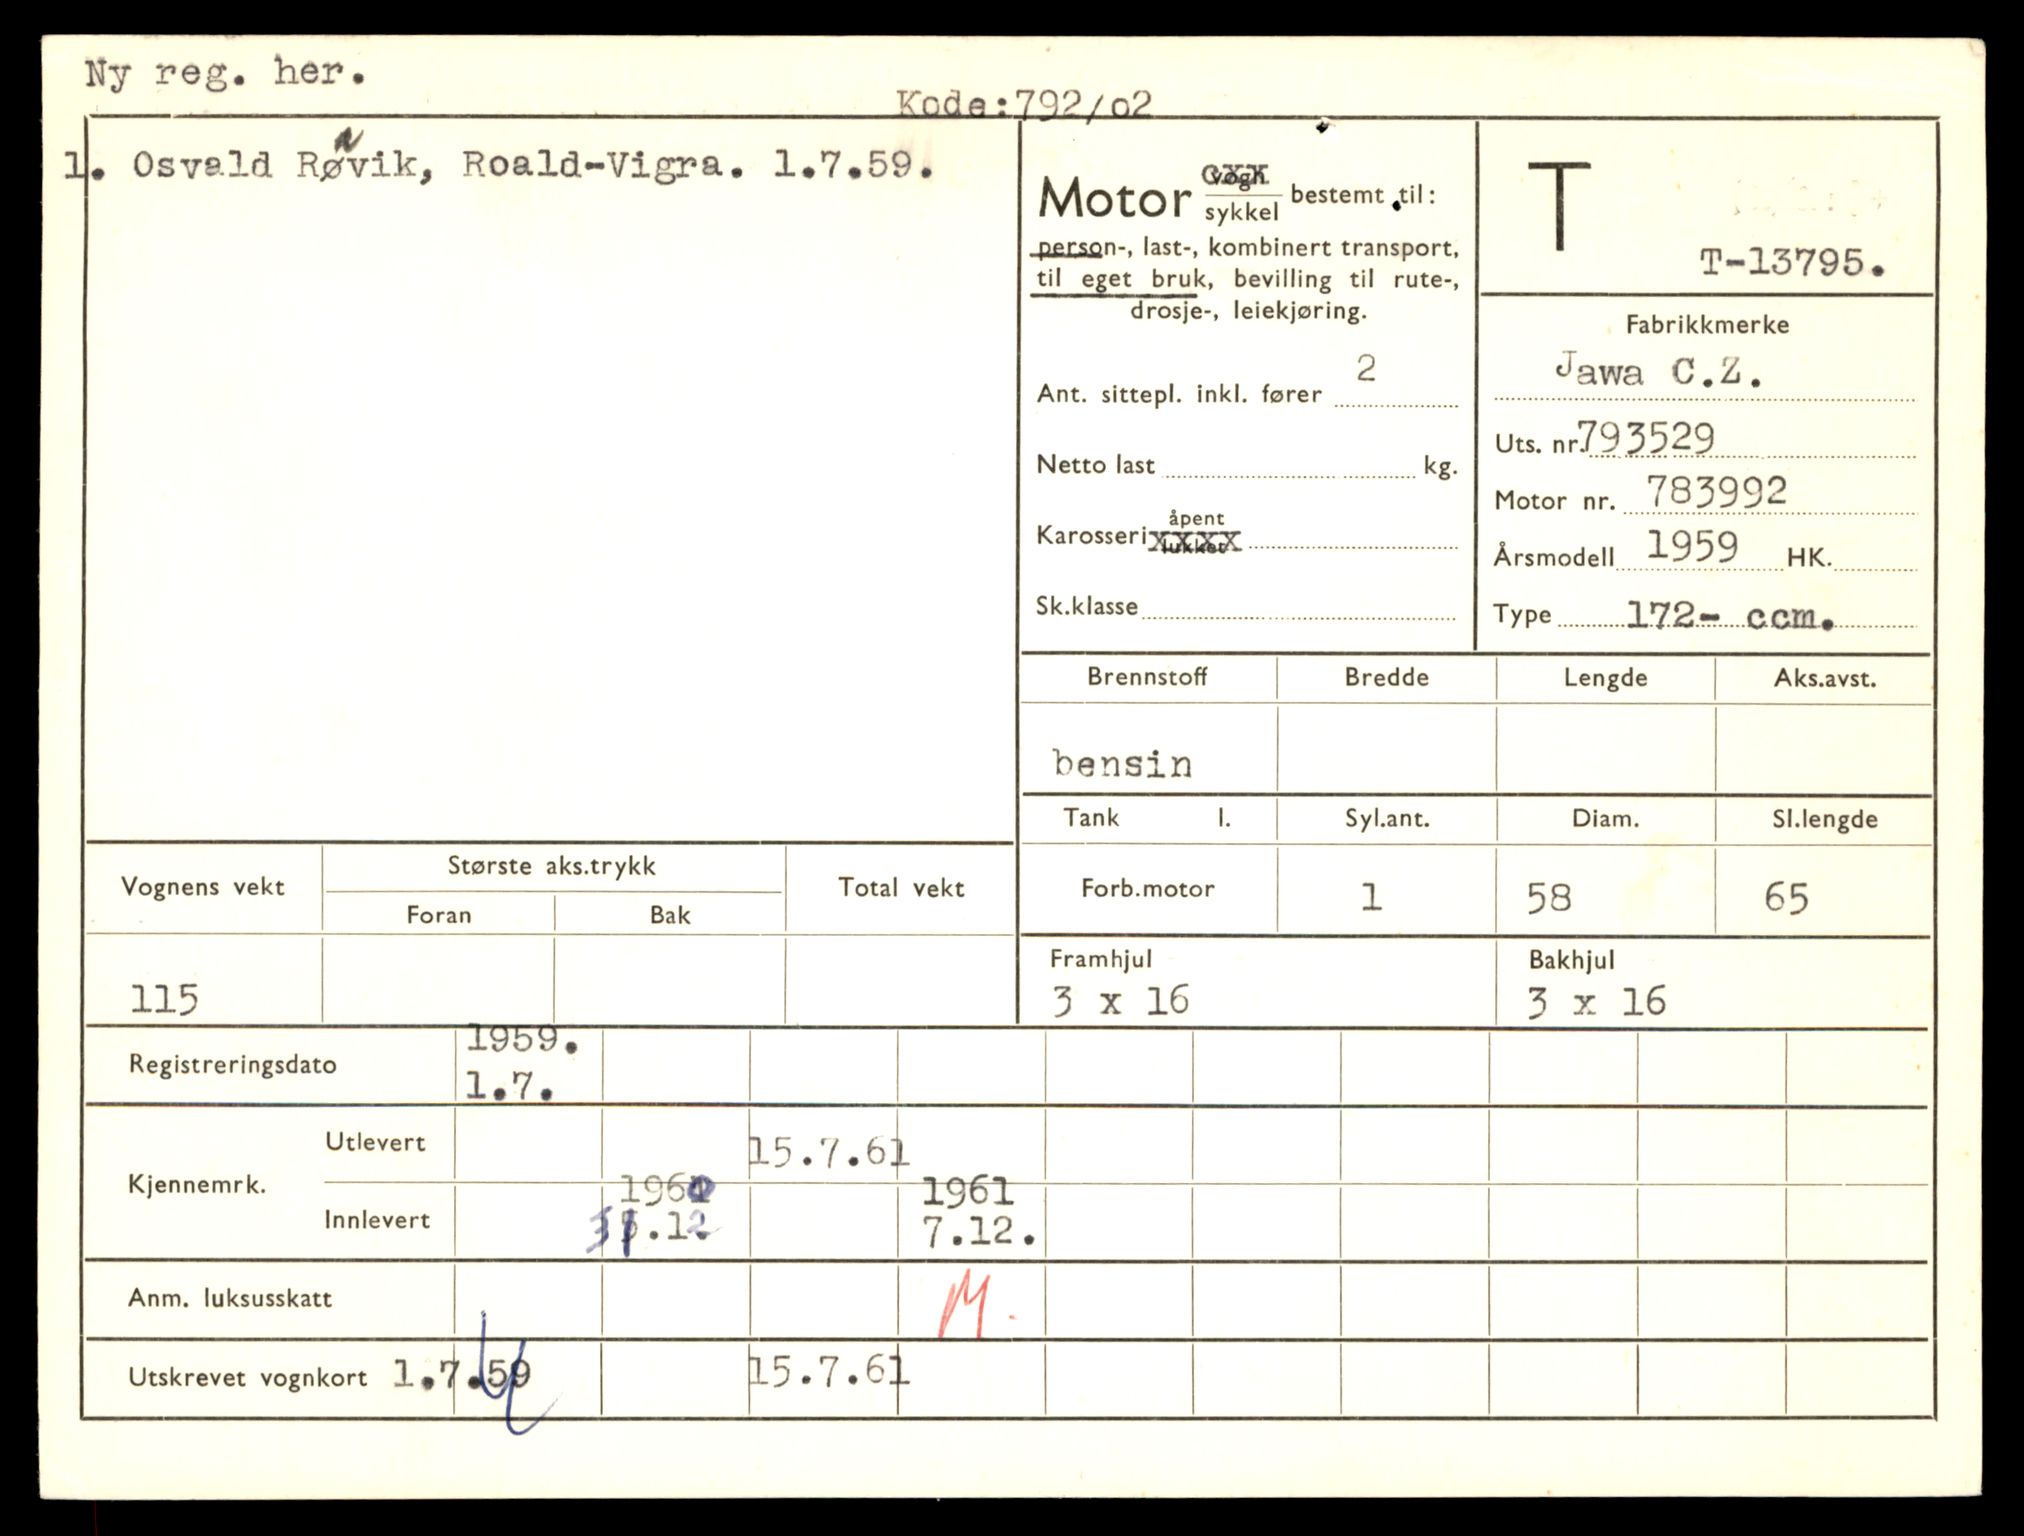 Ny reg. her.
Kode:792/o2
1. Osvald Røvik, Roald-Vigra. 1.7.59.
Motor vogn sykkel bestemt til:
person-, last-, kombinert transport,
til eget bruk, bevilling til rute-,
drosje-, leiekjøring.
Ant. sittepl. inkl. fører 2
Netto last kg.
Karosseri åpent lukket
Sk.klasse
T
T-13795.
Fabrikkmerke
Jawa C.Z.
Uts. nr. 793529
Motor nr. 783992
Årsmodell 1959 HK.
Type 172- ccm.
Brennstoff Bredde Lengde Aks.avst.
bensin
Tank l. Syl.ant. Diam. Sl.lengde
Forb.motor 1 58 65
Framhjul Bakhjul
3 x 16 3 x 16
Vognens vekt Største aks.trykk Total vekt
Foran Bak
115
Registreringsdato 1959.
1.7.
Kjennemrk.
Utlevert 15.7.61
1960 1961
Innlevert 31.12 7.12.
Anm. luksusskatt M.
Utskrevet vognkort 1.7.59 15.7.61